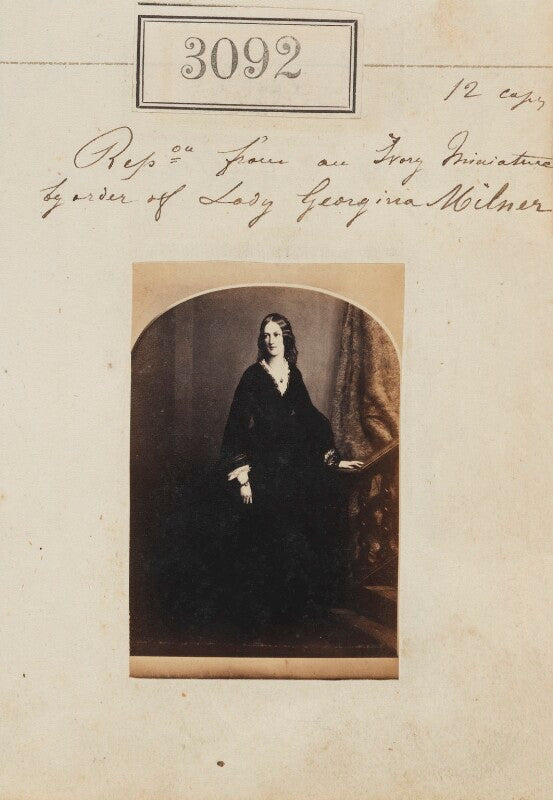 3092
12 copy
Repᵒⁿ from an Ivory Miniature
by order of Lady Georgina Milner